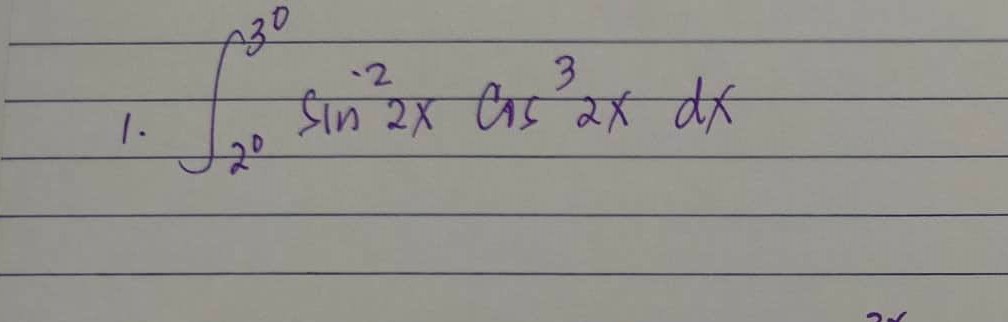 1. ∫_{2°}^{3°} sin² 2x cos³ 2x dx